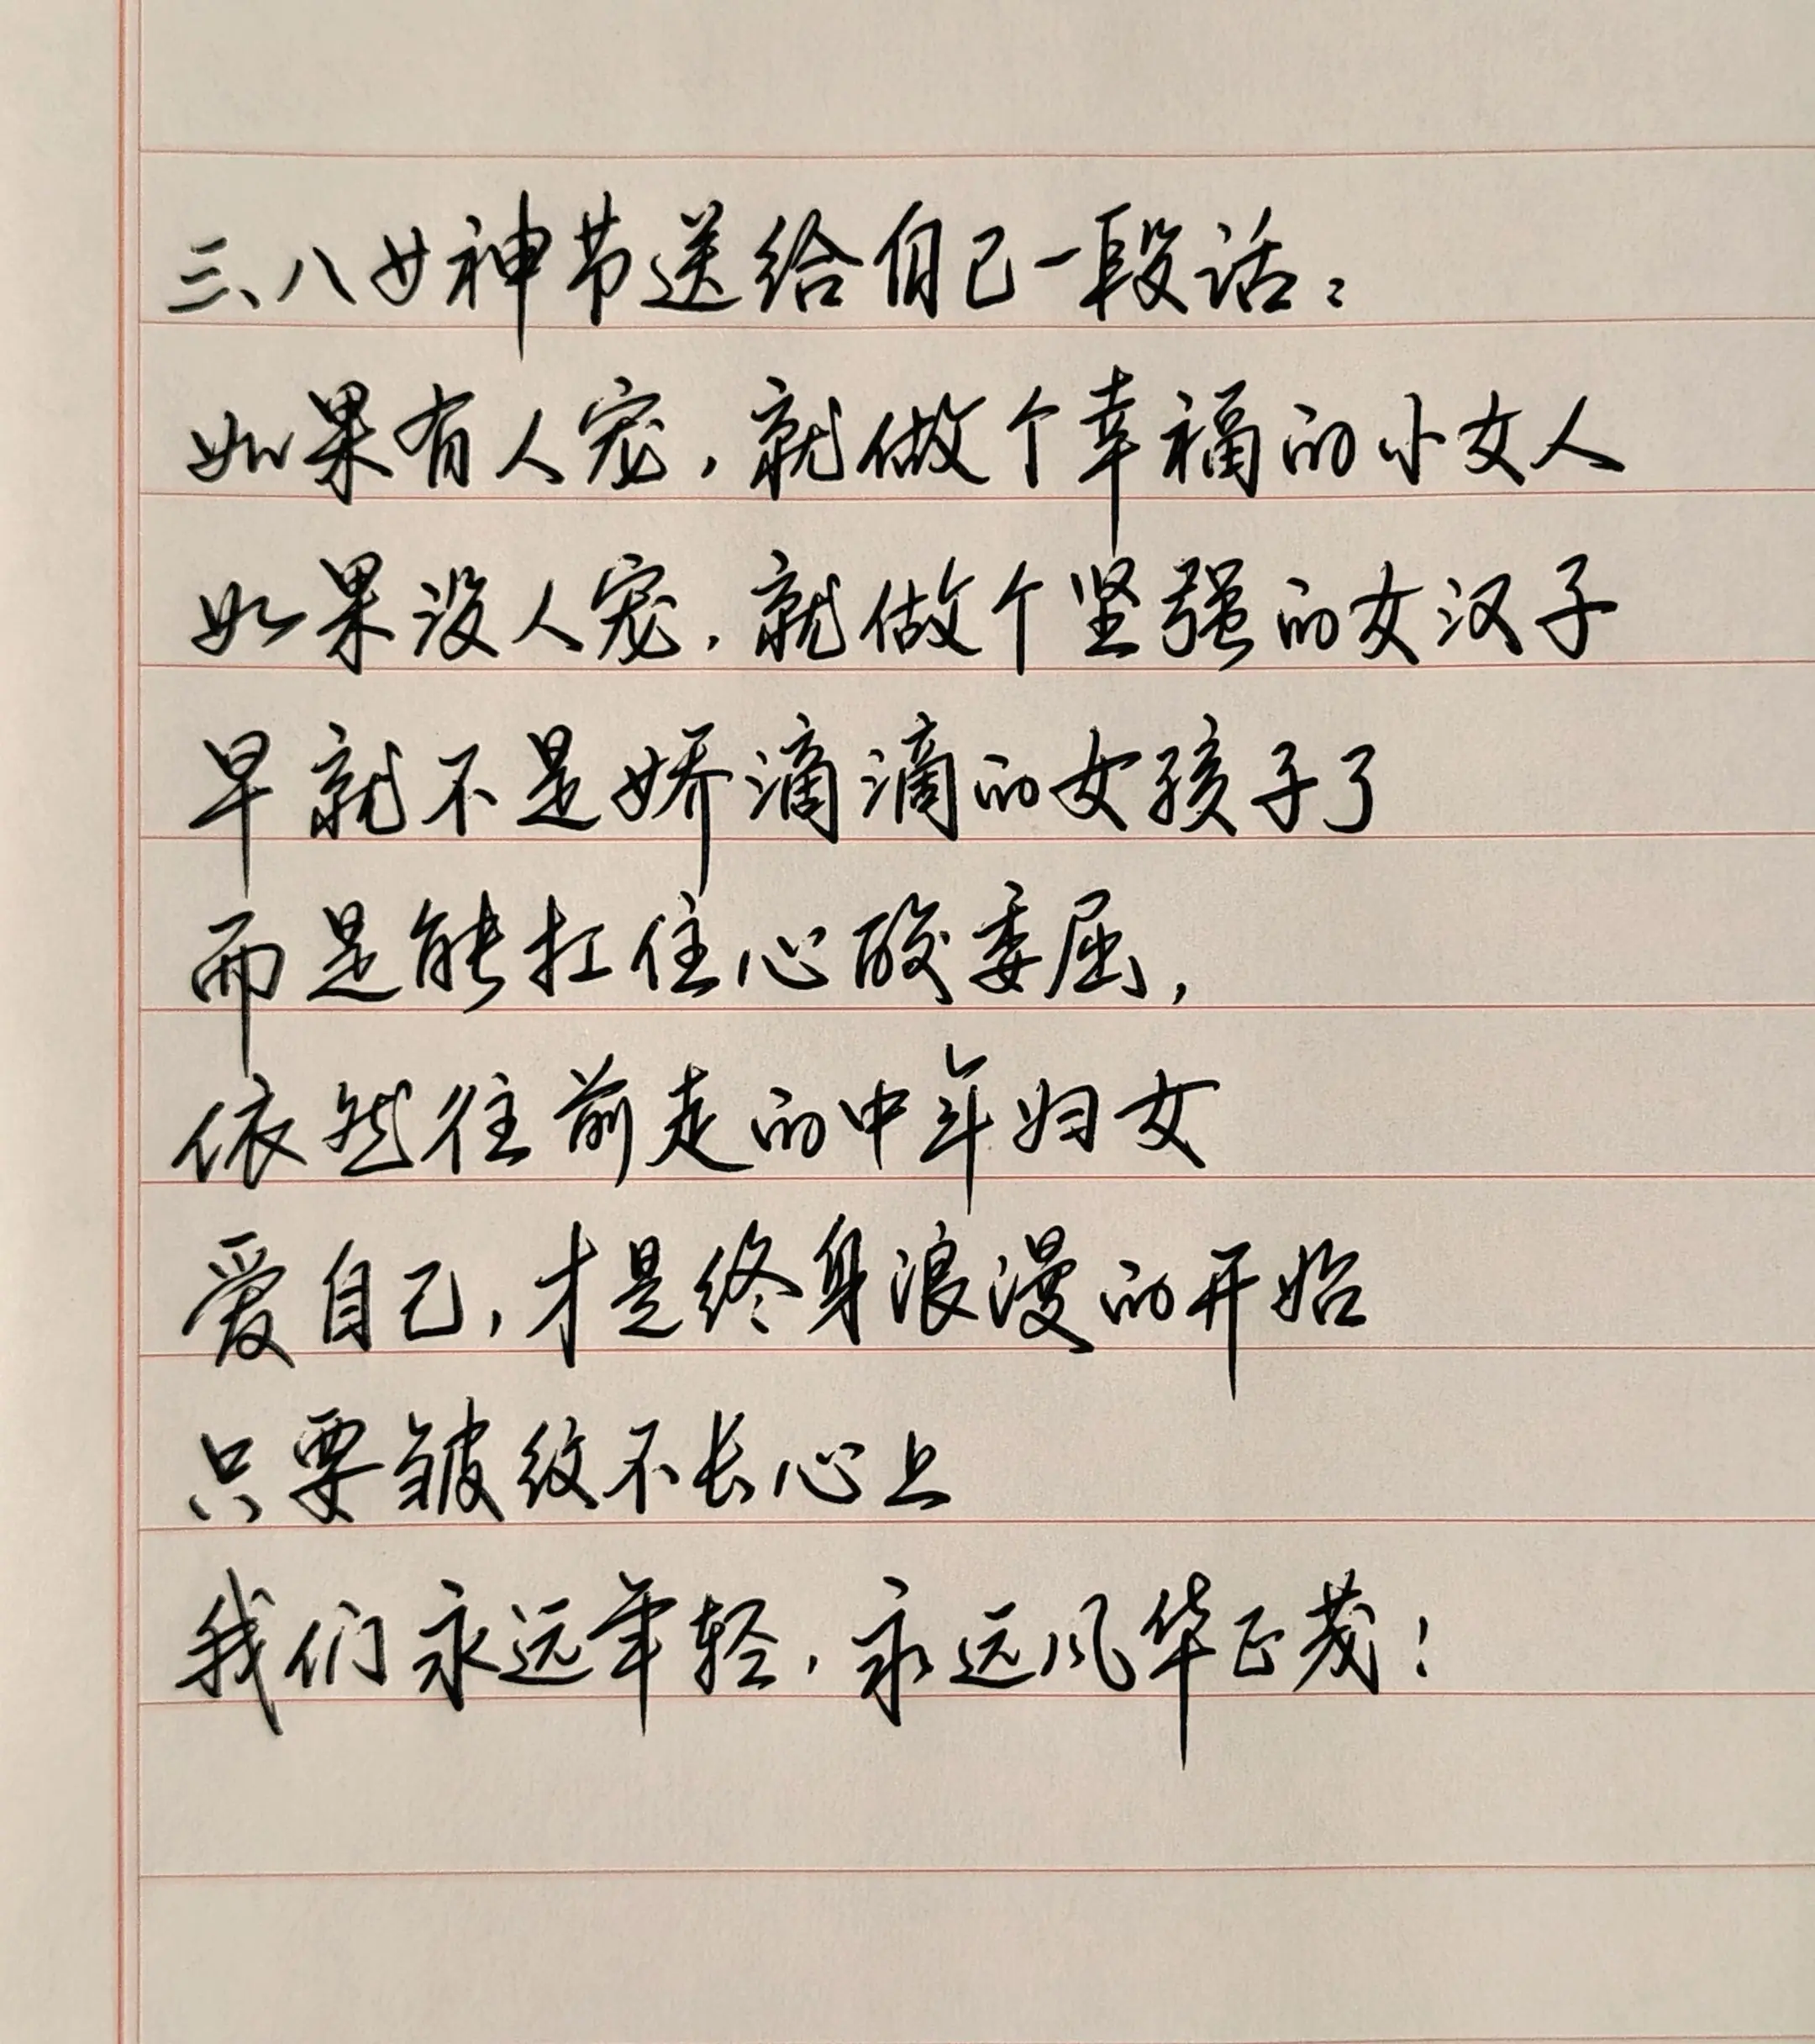 三、八女神节送给自己一段话：
如果有人宠，就做个幸福的小女人
如果没人宠，就做个坚强的女汉子
早就不是娇滴滴的女孩子了
而是能扛住心酸委屈，
依然往前走的中年妇女
爱自己，才是终身浪漫的开始
只要皱纹不长心上
我们永远年轻，永远风华正茂！